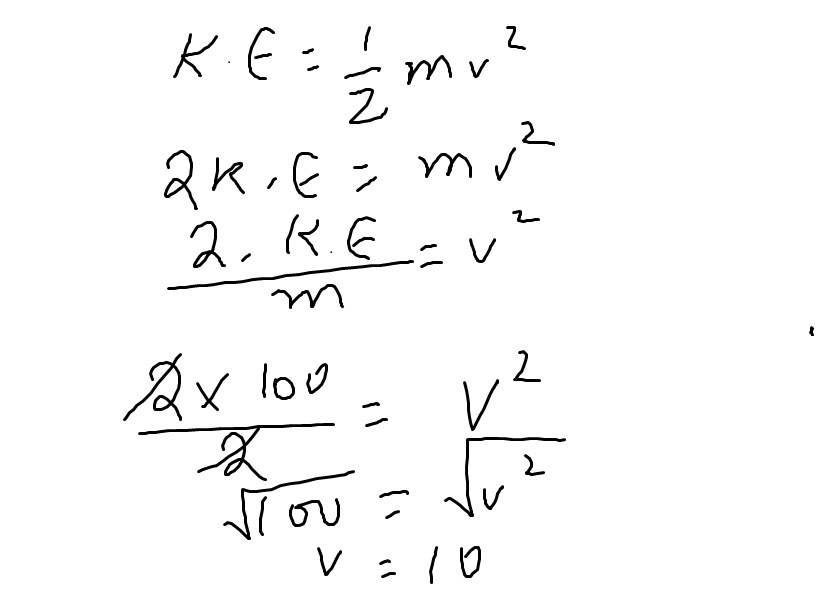 K.E = 1/2 mv²
2K.E = mv²
2.K.E/m = v²
2 x 100/2 = V²
√100 = √v²
v = 10